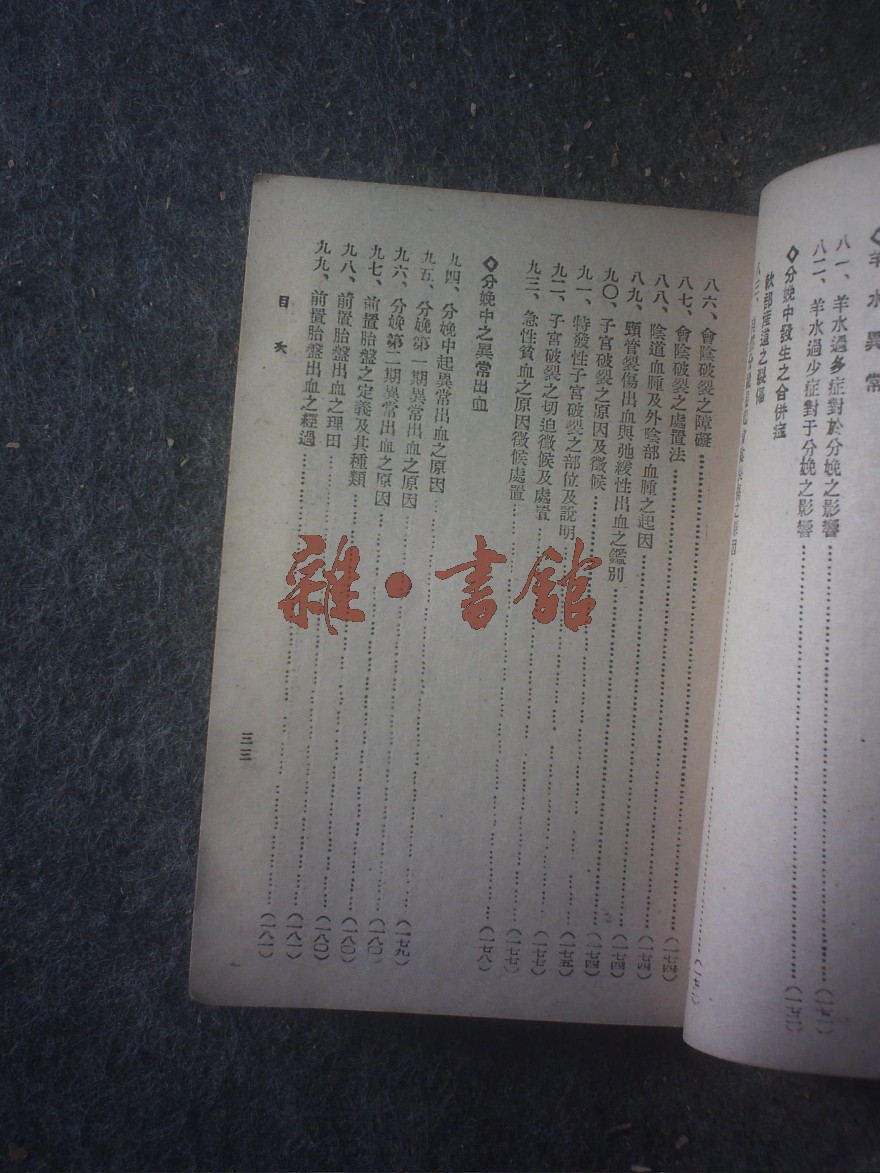 ◇羊水異常
八一、羊水過多症對於分娩之影響
八二、羊水過少症對于分娩之影響
◇分娩中發生之合併症
軟部產道之裂傷
八六、會陰破裂之障礙……(一七四)
八七、會陰破裂之處置法……(一七四)
八八、陰道血腫及外陰部血腫之起因……(一七四)
八九、頸管裂傷出血與弛緩性出血之鑑別……(一七四)
九〇、子宮破裂之原因及徵候……(一七五)
九一、特發性子宮破裂之部位及說明……(一七七)
九二、子宮破裂之切迫徵候及處置……(一七七)
九三、急性貧血之原因徵候處置……(一七八)
◇分娩中之異常出血
九四、分娩中起異常出血之原因……(一七九)
九五、分娩第一期異常出血之原因……(一八〇)
九六、分娩第二期異常出血之原因……(一八〇)
九七、前置胎盤之定義及其種類……(一八〇)
九八、前置胎盤出血之理由……(一八一)
九九、前置胎盤出血之經過……(一八一)
目次
三三
雜·書館